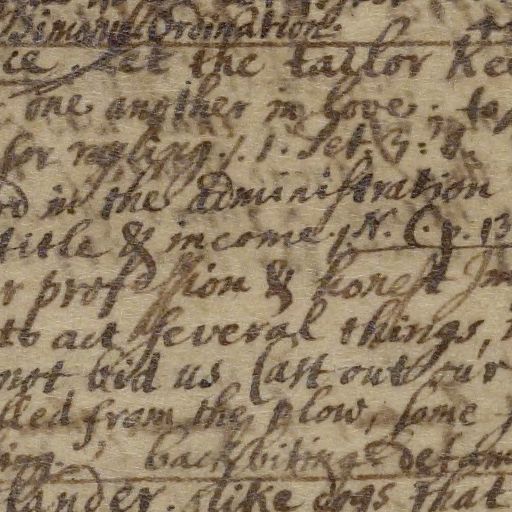 Simonis Ordination.
ce. Let the taylor Kee
one another in love. to
for rayling. 1. Pet. 3: 8.
in the administration
title & income. 1. N. C. p. 13
r profession & honest Im
to act several things,
not bid us Cast out our
lled from the plow, some
backbiting & defam
lander. like dogs that